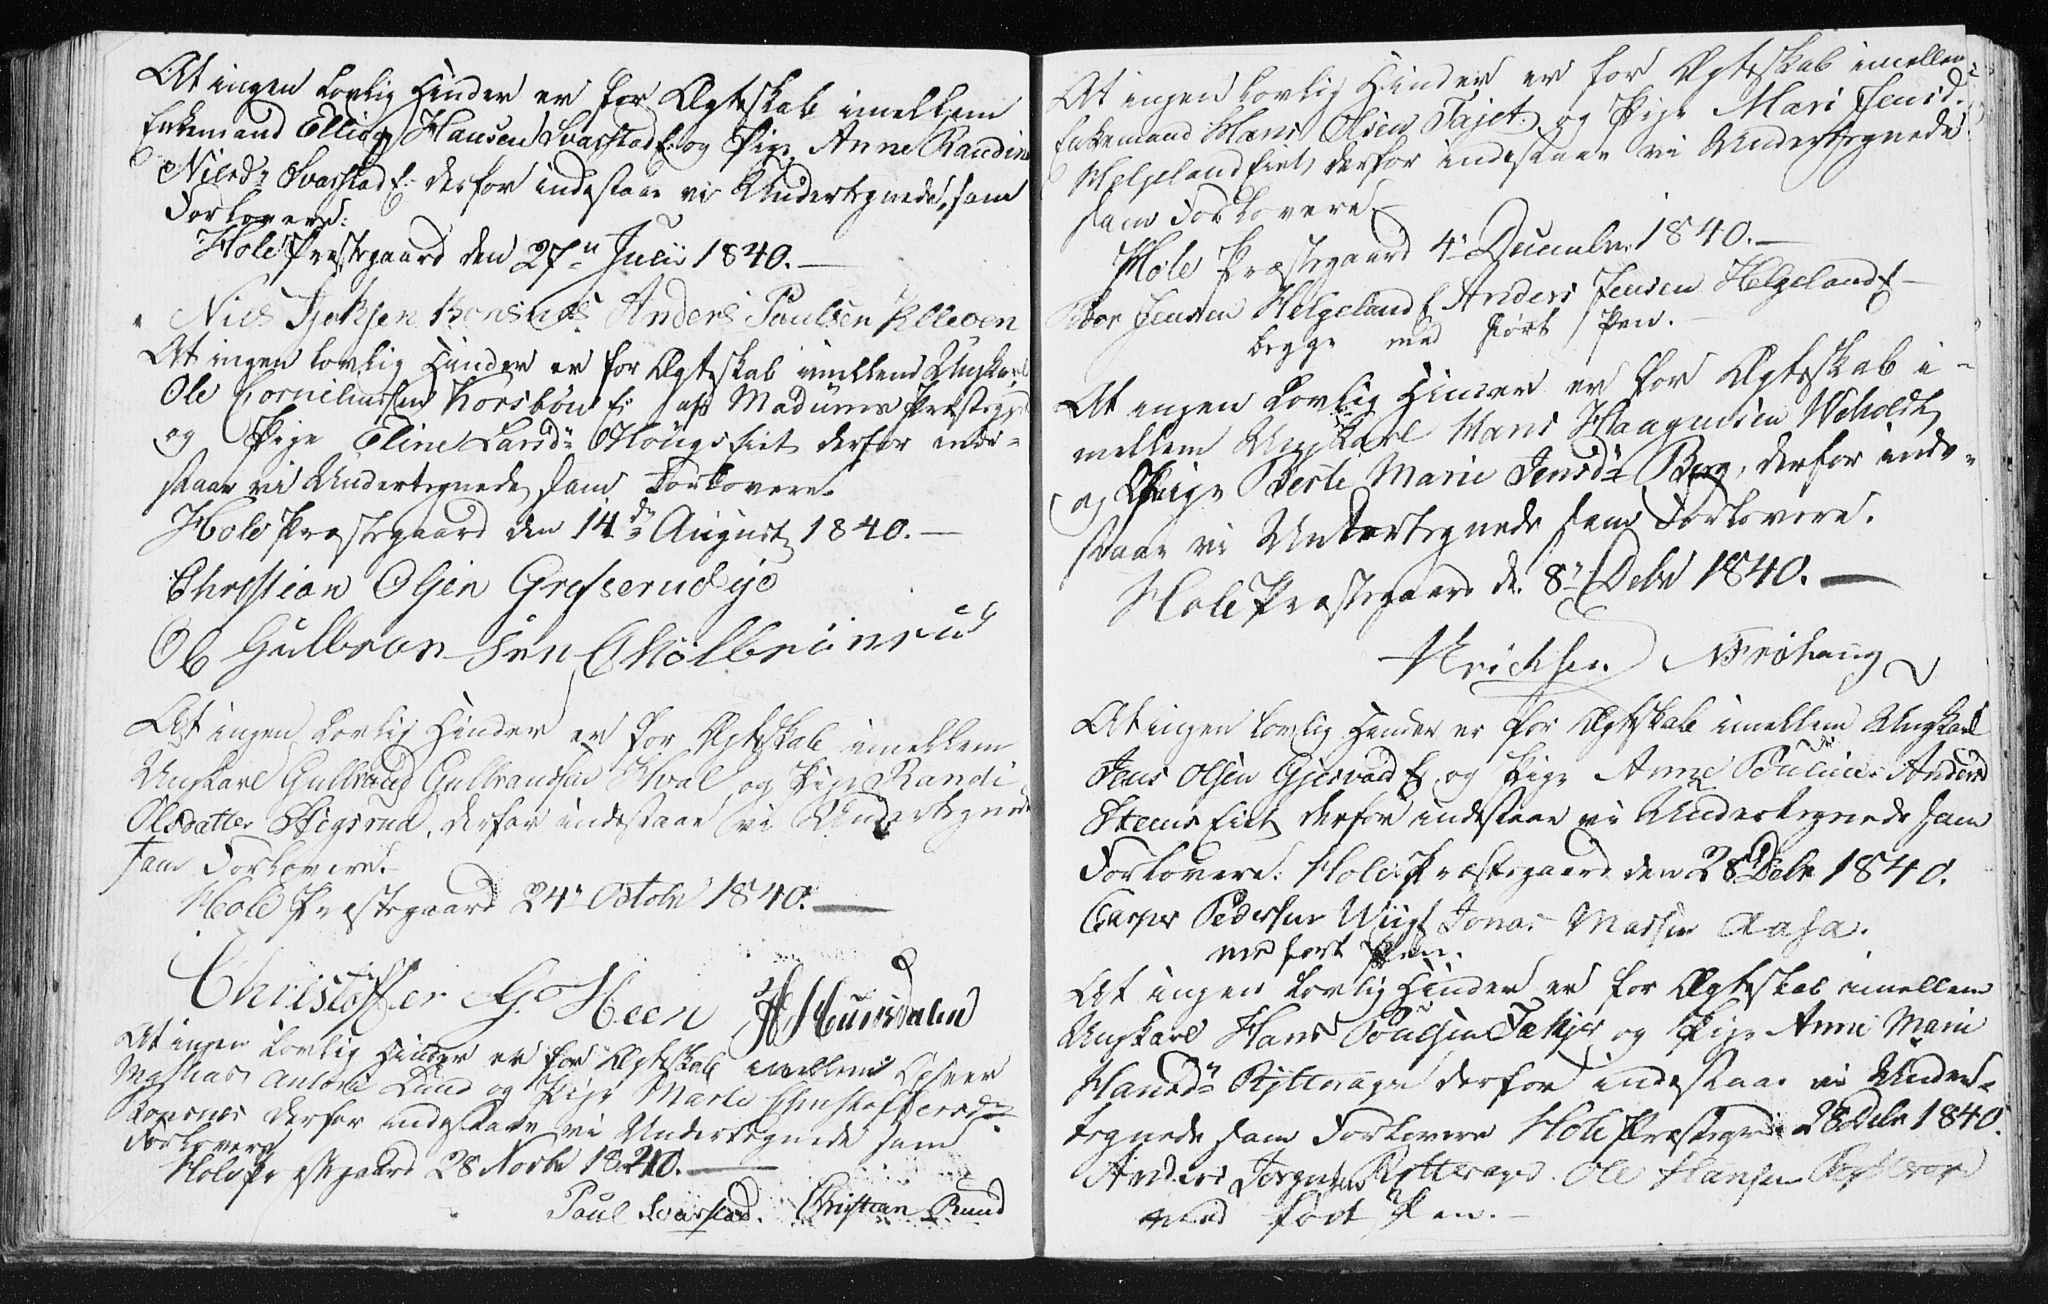 At ingen lovlig Hinder er for Ægteskab imellem
Enkemand Elling Hansen Svarstad E: og Pige Anne Randine
Nilsd: Svarstad E: derfor indestaae vi Undertegnede, som
Forlovere:
Hole Præstegaard den 27de Julii 1840.—
Nils Ijelsen Bonsnæs Anders Paulsen
At ingen lovlig Hinder er for Ægteskab imellem Ungkarl
Ole Corneliussen Korsbøn E: af Modums Præstegj
og Pige Eline Larsd: Hougs Eiet derfor inde=
staae vi Undertegnede som Forlovere.
Hole Præstegaard den 14de August 1840.—
Christian Olsen
Ole Gulbransen
At ingen lovlig Hinder er for Ægteskab imellem
Ungkarl Gulbrand Gulbrandsen Hval og Pige Randi
Olsdatter Stigsrud, derfor indestaae vi Undertegnede
som Forlovere.
Hole Præstegaard 24' Octobr 1840.—
Christoffer G. Heen
At ingen lovlig Hinder er for Ægteskab imellem
Mathias Anton Lund og Pige Marte Christoffersd:
Bonsnæs derfor indestaae vi Undertegnede som
Forlovere
Hole Præstegaard 28 Novbr 1840.—
Paul Svarstad. Christian Rund
At ingen lovlig Hinder er for Ægteskab imellem
Enkemand Hans Olsen Fajet og Pige Mari Jensd.
Helgeland Eiet, derfor indestaae vi Undertegnede
som Forlovere—
Hole Præstegaard 4' December 1840.—
Thor Jensen Helgeland E Anders Jensen Helgeland E—
begge med ført Pen.—
At ingen lovlig Hinder er for Ægteskab i-
mellem Ungkarl Hans Haagensen Weholdt
og Pige Berte Marie Jensd: Berg, derfor inde=
staae vi Undertegnede som Forlovere.
Hole Præstegaard d. 8' Debr 1840.—
Frøhaug
At ingen lovlig Hinder er for Ægteskab imellem Ungkarl
Jens Olsen Gjesvad E og Pige Anne Pauline Andersd
Steens Eiet derfor indestaae vi Undertegnede som
Forlovere. Hole Præstegaard den 28 Debr 1840.
Casper Pedersen Wiig E Jonas Massen Aasa.
med ført Pen.
At ingen lovlig Hinder er for Ægteskab imellem
Ungkarl Hans Poulsen og Pige Anne Marie
Hansd: Rytterager derfor indestaae vi Under=
tegnede som Forlovere Hole Præstegrd 28 Debr 1840.
Anders Jørgensen Rytterager Ole Hansen
med ført Pen.—